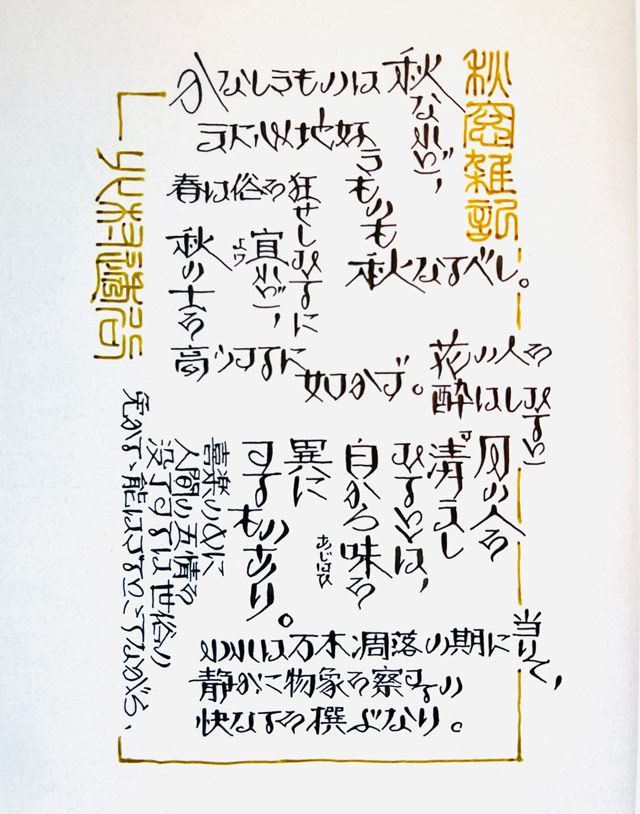 秋窓雑記
かなしきものは秋
なれど、
また心地好
きものも
秋なるべし。
春は俗を
狂せしむるに
宜れど、
秋の士を
高うするに
如かず。
花の人を
酔はしむると
月の人を
清ましむ
るとは、
自から味を
あじはひ
異に
するものあり。
喜楽の中に
人間の五情を
没了するは世俗の
免かるゝ能はざるところながら、
われは万木凋落の期に
当りて、
静かに物象を察するの
快なるを撰ぶなり。
北村透谷